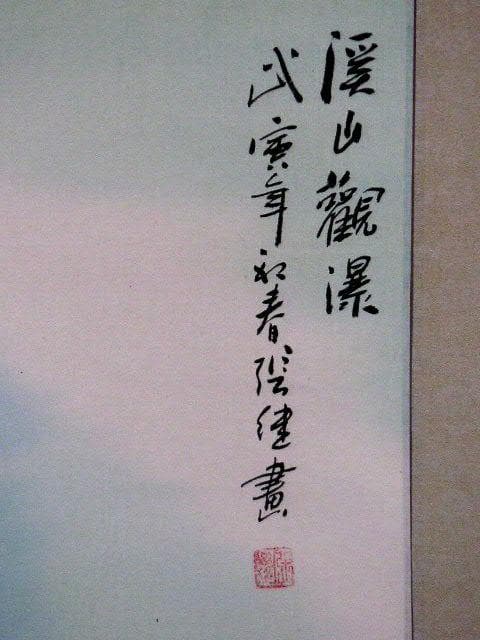 溪山觀瀑
戊寅年初春張健畫